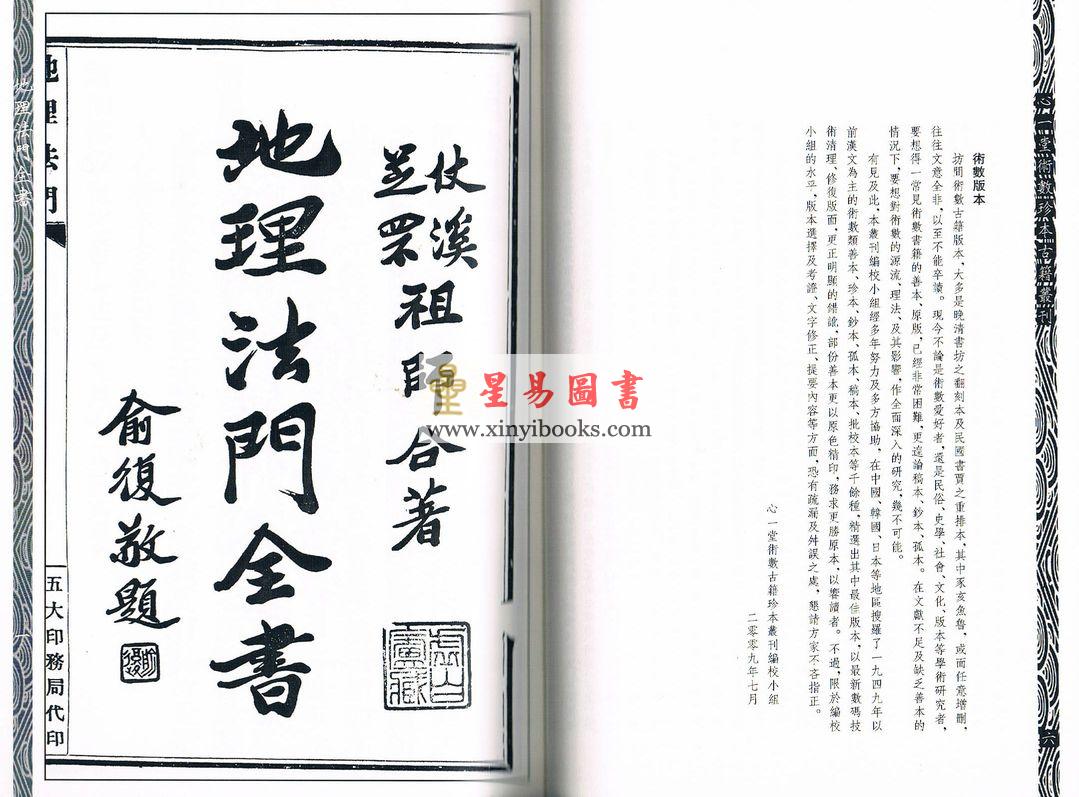 心一堂術數珍本古籍叢刊
六
術數版本
坊間術數古籍版本，大多是晚清書坊之翻刻本及民國書賈之重排本，其中豕亥魚魯，或而任意增刪，
往往文意全非，以至不能卒讀。現今不論是術數愛好者，還是民俗、史學、社會、文化、版本等學術研究者，
要想得一常見術數書籍的善本、原版，已經非常困難，更遑論稿本、鈔本、孤本。在文獻不足及缺乏善本的
情況下，要想對術數的源流、理法、及其影響，作全面深入的研究，幾不可能。
有見及此，本叢刊編校小組經多年努力及多方協助，在中國、韓國、日本等地區搜羅了一九四九年以
前漢文為主的術數類善本、珍本、鈔本、孤本、稿本、批校本等千餘種，精選出其中最佳版本，以最新數碼技
術清理、修復版面，更正明顯的錯訛，部份善本更以原色精印，務求更勝原本，以饗讀者。不過，限於編校
小組的水平，版本選擇及考證、文字修正、提要內容等方面，恐有疏漏及舛誤之處，懇請方家不吝指正。
心一堂術數古籍珍本叢刊編校小組
二零零九年七月
仗溪
芝罘
祖師合著
地理法門全書
俞復敬題
俞復
地理法門
五大印務局代印
地理法門全書
星易圖書
www.xinyibooks.com